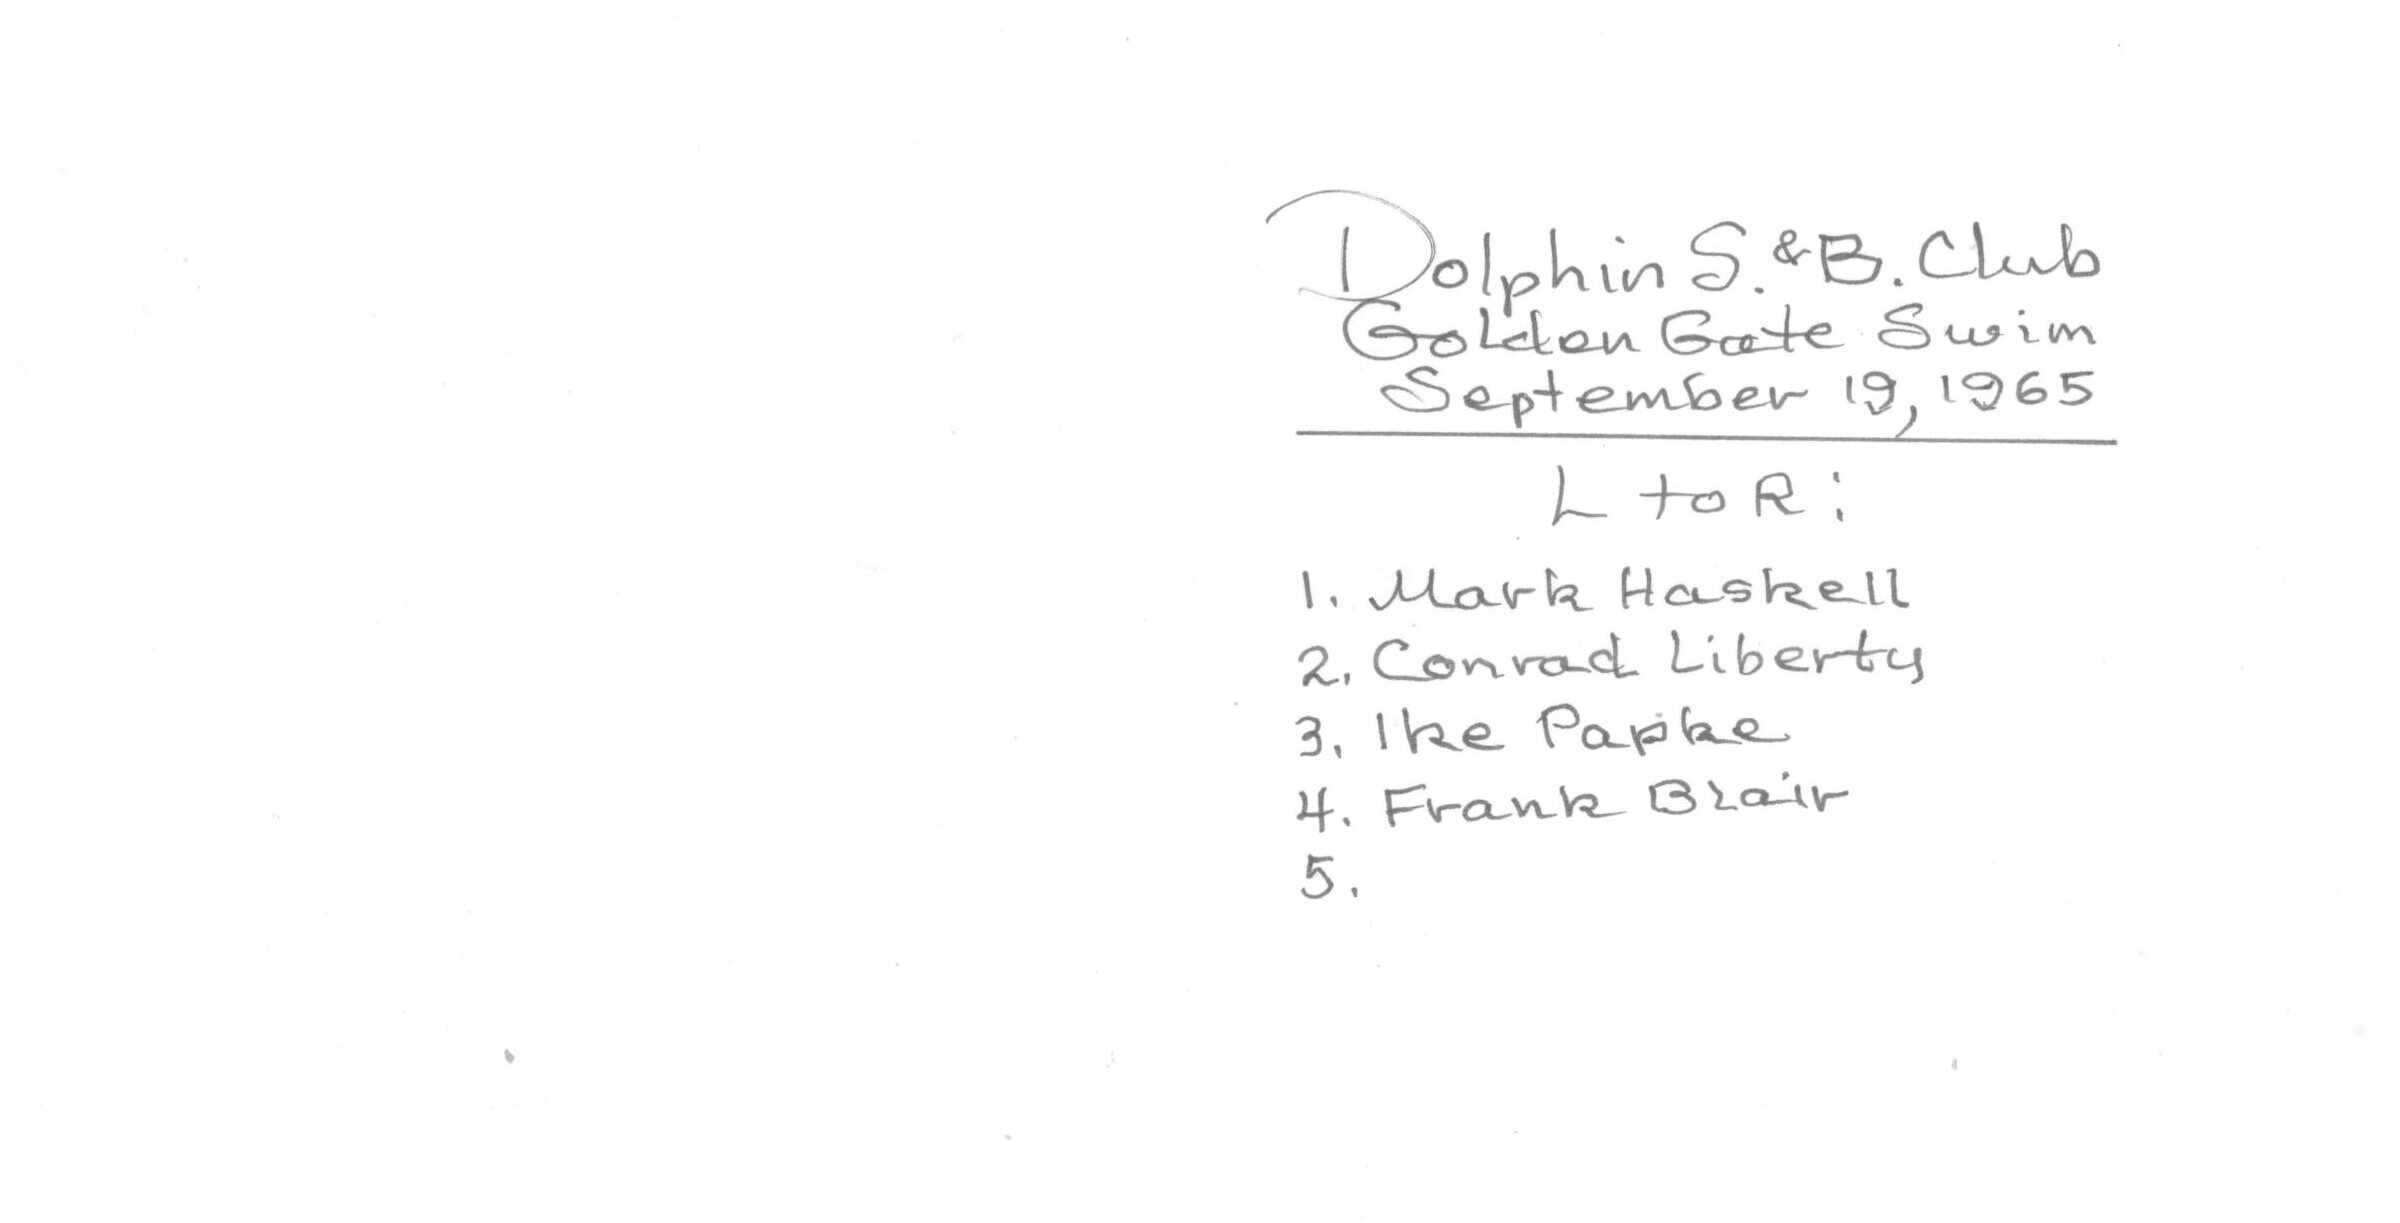 Dolphin S. & B. Club
Golden Gate Swim
September 19, 1965
L to R:
1. Mark Haskell
2. Conrad Liberty
3. Ike Papke
4. Frank Blair
5.